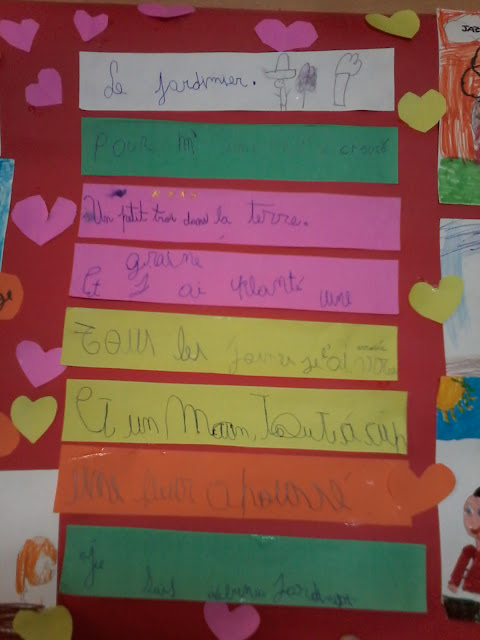 Le jardinier.
Pour m'
Un petit trou dans la terre.
graine
Et J ai planté une
Tous les jours je l'ai
Et un Matin, Tout à cup
une fleur a poussé
Je suis devenu Jardinier